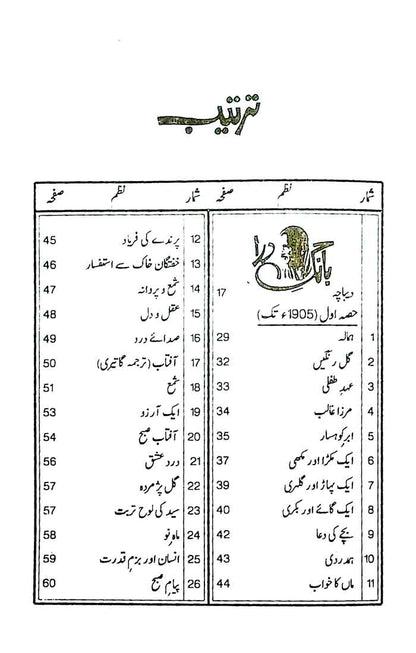 ترتیب
شمار نظم صفحہ
بانگ درا
دیباچہ 17
حصہ اول (1905ء تک)
1 ہمالہ 29
2 گل رنگیں 32
3 عہد طفلی 33
4 مرزا غالب 34
5 ابر کوہسار 35
6 ایک مکڑا اور مکھی 37
7 ایک پہاڑ اور گلہری 39
8 ایک گائے اور بکری 40
9 بچے کی دعا 42
10 ہمدردی 43
11 ماں کا خواب 44
شمار نظم صفحہ
12 پرندے کی فریاد 45
13 خفتگان خاک سے استفسار 46
14 شمع و پروانہ 47
15 عقل و دل 48
16 صدائے درد 49
17 آفتاب (ترجمہ گاتیری) 50
18 شمع 51
19 ایک آرزو 53
20 آفتاب صبح 54
21 درد عشق 56
22 گل پژمردہ 57
23 سید کی لوح تربت 57
24 ماہ نو 58
25 انسان اور بزم قدرت 59
26 پیام صبح 60